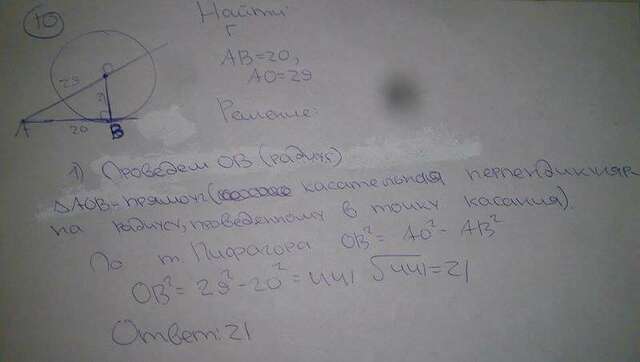 10
Найти
r
AB=20,
AO=29
Решение:
O
29
?
A
20
B
1) Проведем OB (радиус)
△AOB-прямоуг( касательная перпендикуляр
на радиусу, проведенному в точку касания).
По т. Пифагора OB²= AO²- AB²
OB²= 29²-20²=441 √441=21
Ответ: 21